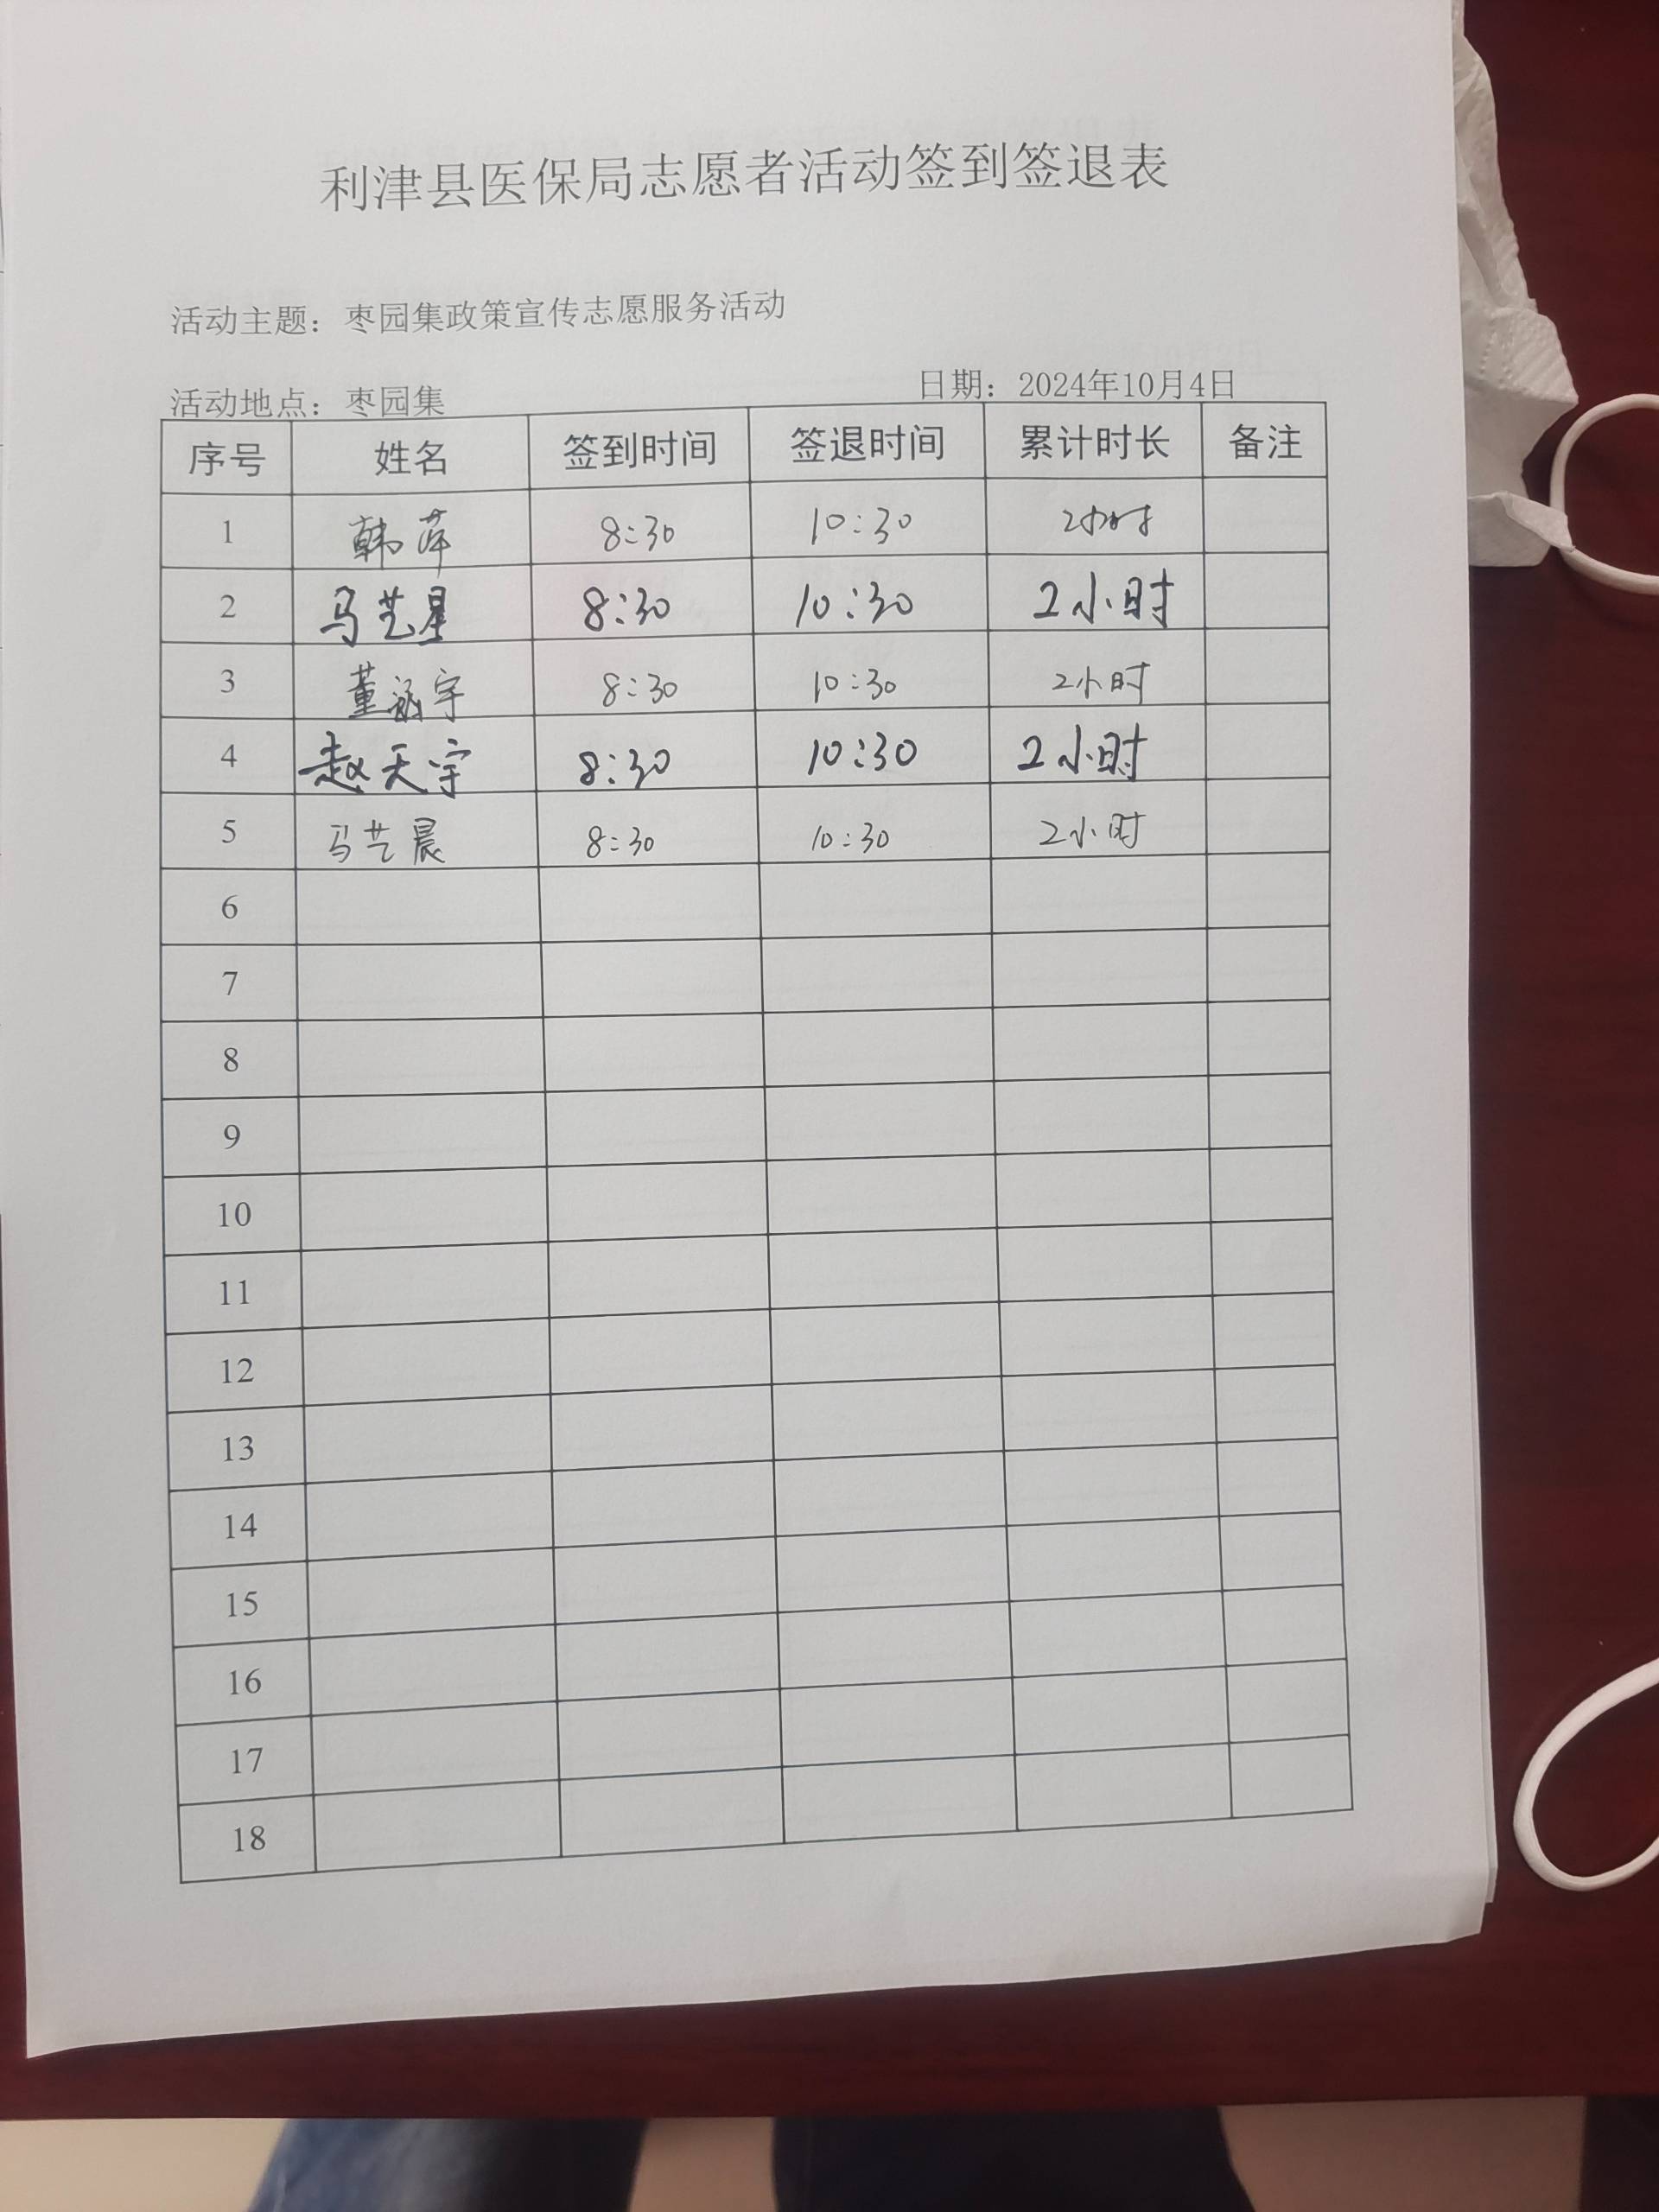 利津县医保局志愿者活动签到签退表
活动主题：枣园集政策宣传志愿服务活动
活动地点：枣园集 日期：2024年10月4日
序号 姓名 签到时间 签退时间 累计时长 备注
1 韩萍 8:30 10:30 2小时
2 马艺星 8:30 10:30 2小时
3 董涵宇 8:30 10:30 2小时
4 赵天宇 8:30 10:30 2小时
5 马艺晨 8:30 10:30 2小时
6
7
8
9
10
11
12
13
14
15
16
17
18